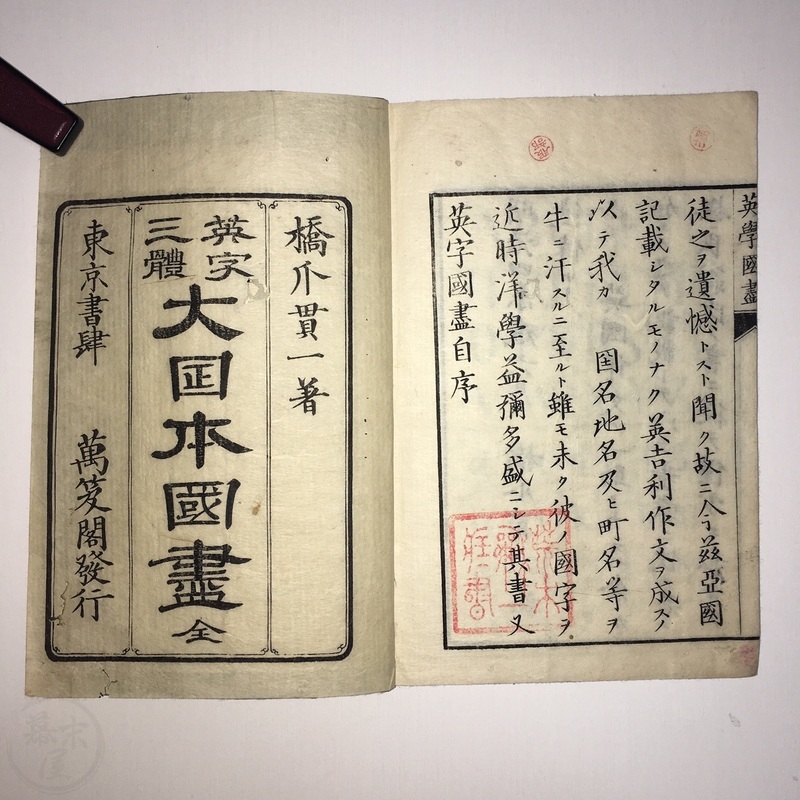 橋爪貫一著
英字
三體
大日本國盡 全
東京書肆 萬笈閣發行
英字國盡自序
近時洋學益彌多盛ニシテ其書又
牛ニ汗スルニ至ルト雖モ未タ彼ノ國字ヲ
以テ我カ 国名地名及ヒ町名等ヲ
記載シタルモノナク英吉利作文ヲ成スノ
徒之ヲ遺憾トスト聞ク故ニ今茲亞國
英學國盡
幕末屋